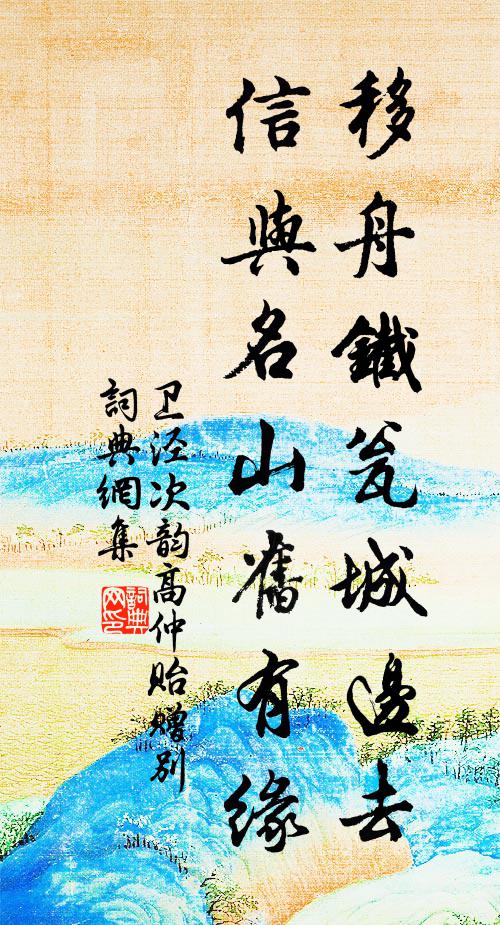 移舟鐵瓮城邊去
信與名山舊有緣
卫泾次韵高仲貽贈别
詞典網集
詞典
网印